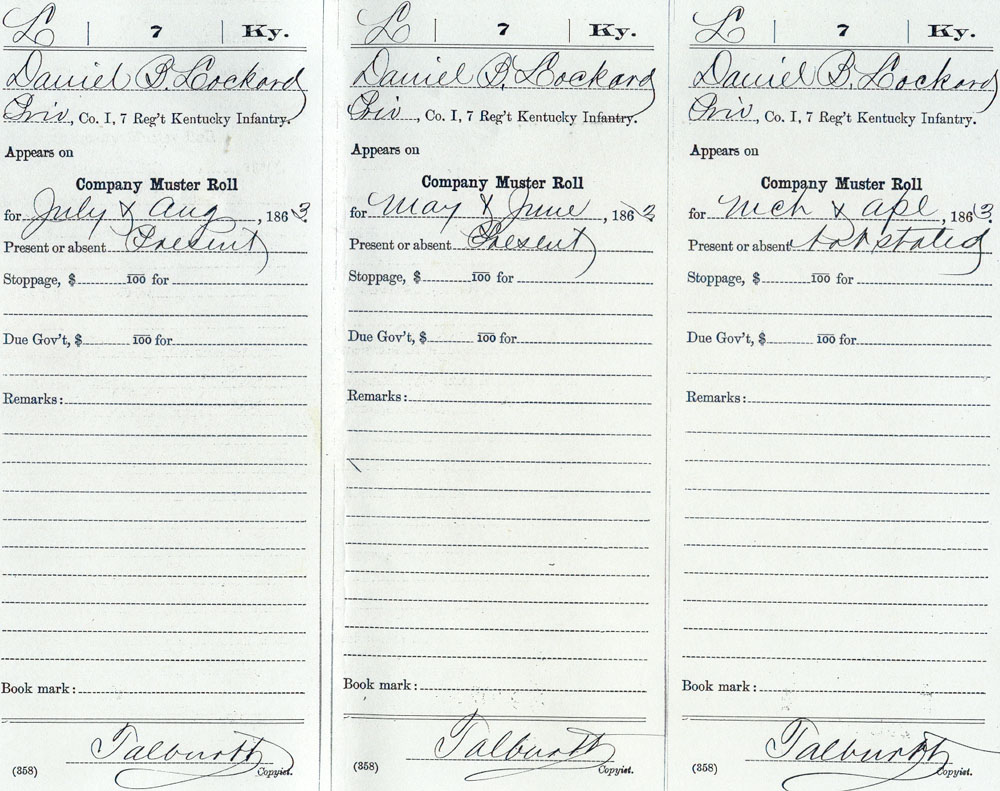 L 7 Ky.
Daniel B. Lockard
Priv, Co. I, 7 Reg't Kentucky Infantry.
Appears on
Company Muster Roll
for July & Aug, 1863.
Present or absent Present
Stoppage, $ 100 for
Due Gov't, $ 100 for
Remarks:
Book mark:
Talburtt
(358) Copyist.
L 7 Ky.
Daniel B. Lockard
Priv, Co. I, 7 Reg't Kentucky Infantry.
Appears on
Company Muster Roll
for May & June, 1863
Present or absent Present
Stoppage, $ 100 for
Due Gov't, $ 100 for
Remarks:
Book mark:
Talburtt
(358) Copyist.
L 7 Ky.
Daniel B. Lockard
Priv, Co. I, 7 Reg't Kentucky Infantry.
Appears on
Company Muster Roll
for Mch & Apl, 1863.
Present or absent Not stated
Stoppage, $ 100 for
Due Gov't, $ 100 for
Remarks:
Book mark:
Talburtt
(358) Copyist.